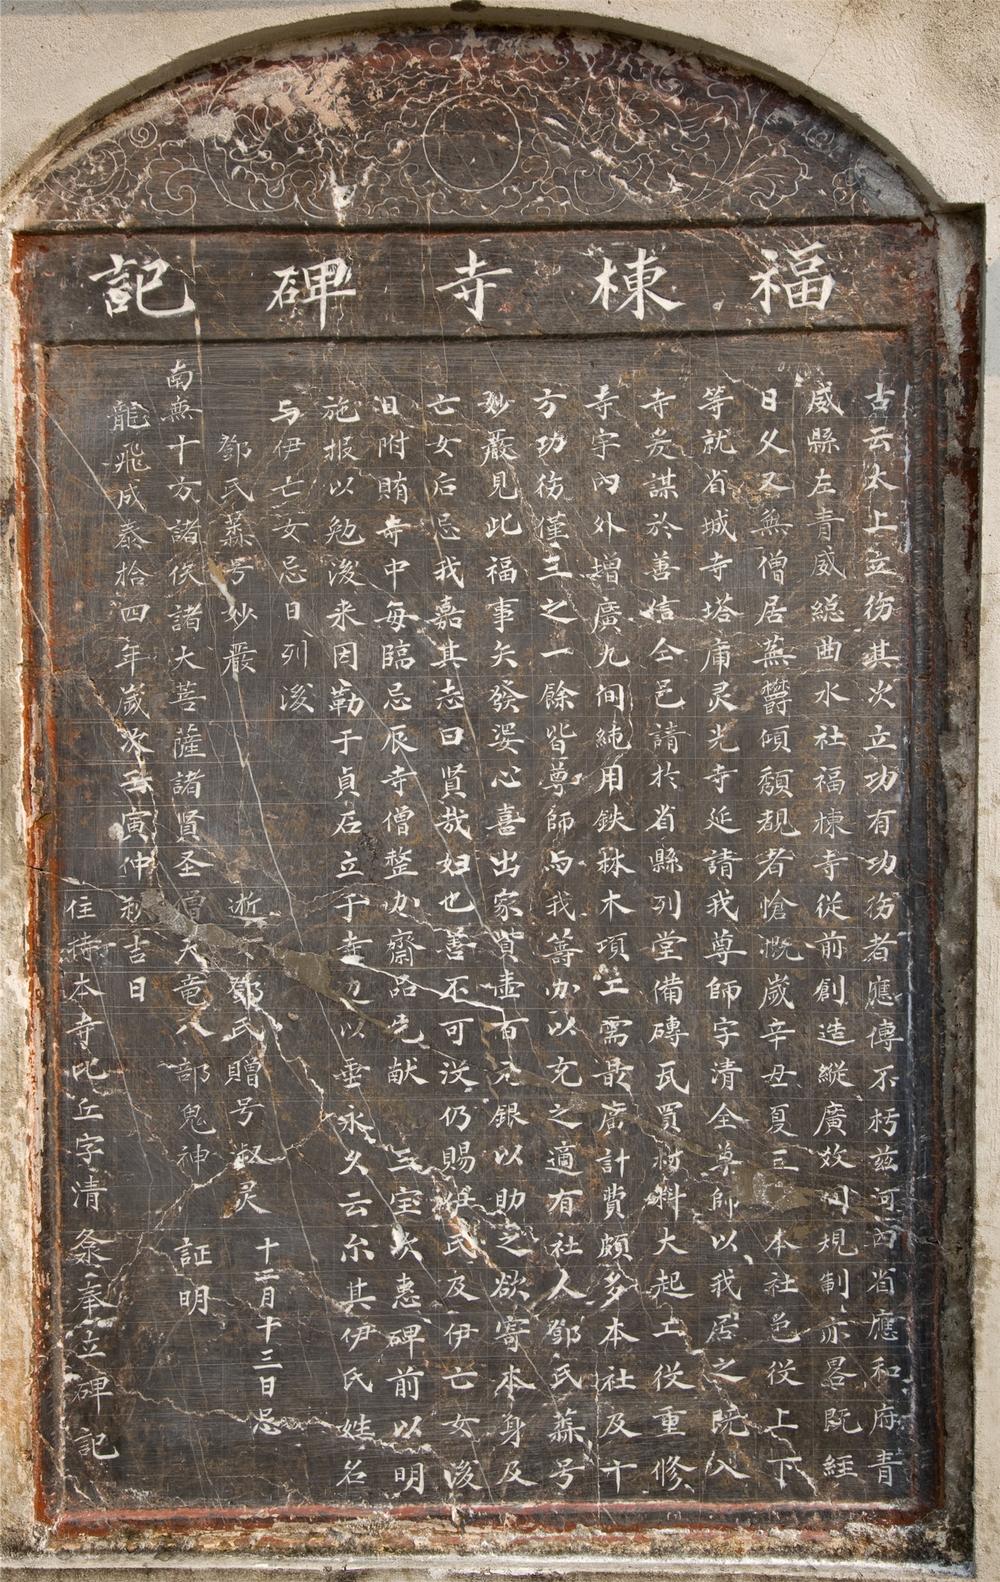 福棟寺碑記
古云太上立德其次立功有功德者應傳不朽茲河內省應和府青
威縣左青威總曲水社福棟寺從前創造縱廣效 規制亦畧既經
日久又無僧居蕪欝傾頹覩者愴慨歲辛丑夏 本社邑從上下
等就省城寺塔庸灵光寺延請我尊師字清全尊師以我居之既入
寺爰謀於善信仝邑請於省縣列堂備磚瓦買材料大起工役重修
寺宇內外增廣九间純用鉄林木項 需最廣計費頗多本社及十
方功德僅三之一餘皆尊師与我籌办以充之適有社人鄧氏蕊号
妙嚴見此福事矢發婆心喜出家貲壹百元銀以助之欲寄本身及
亡女后忌我嘉其志曰賢哉妇也善不可沒仍賜伊氏及伊亡女浚
泪附賄寺中每臨忌辰寺僧整办齋品先献三宝次惠碑前以明
施报以勉浚来因勒于貞石立于寺 以垂永久云尔其伊氏姓名
与伊亡女忌日列浚
鄧氏蕊号妙嚴 逝 鄧氏贈号淑灵 十二月十三日忌
南無十方諸佚諸大菩薩諸賢圣僧天竜八部鬼神 証明
龍飛成泰拾四年歲次壬寅仲秋吉日
住持本寺比丘字清 奉立碑記